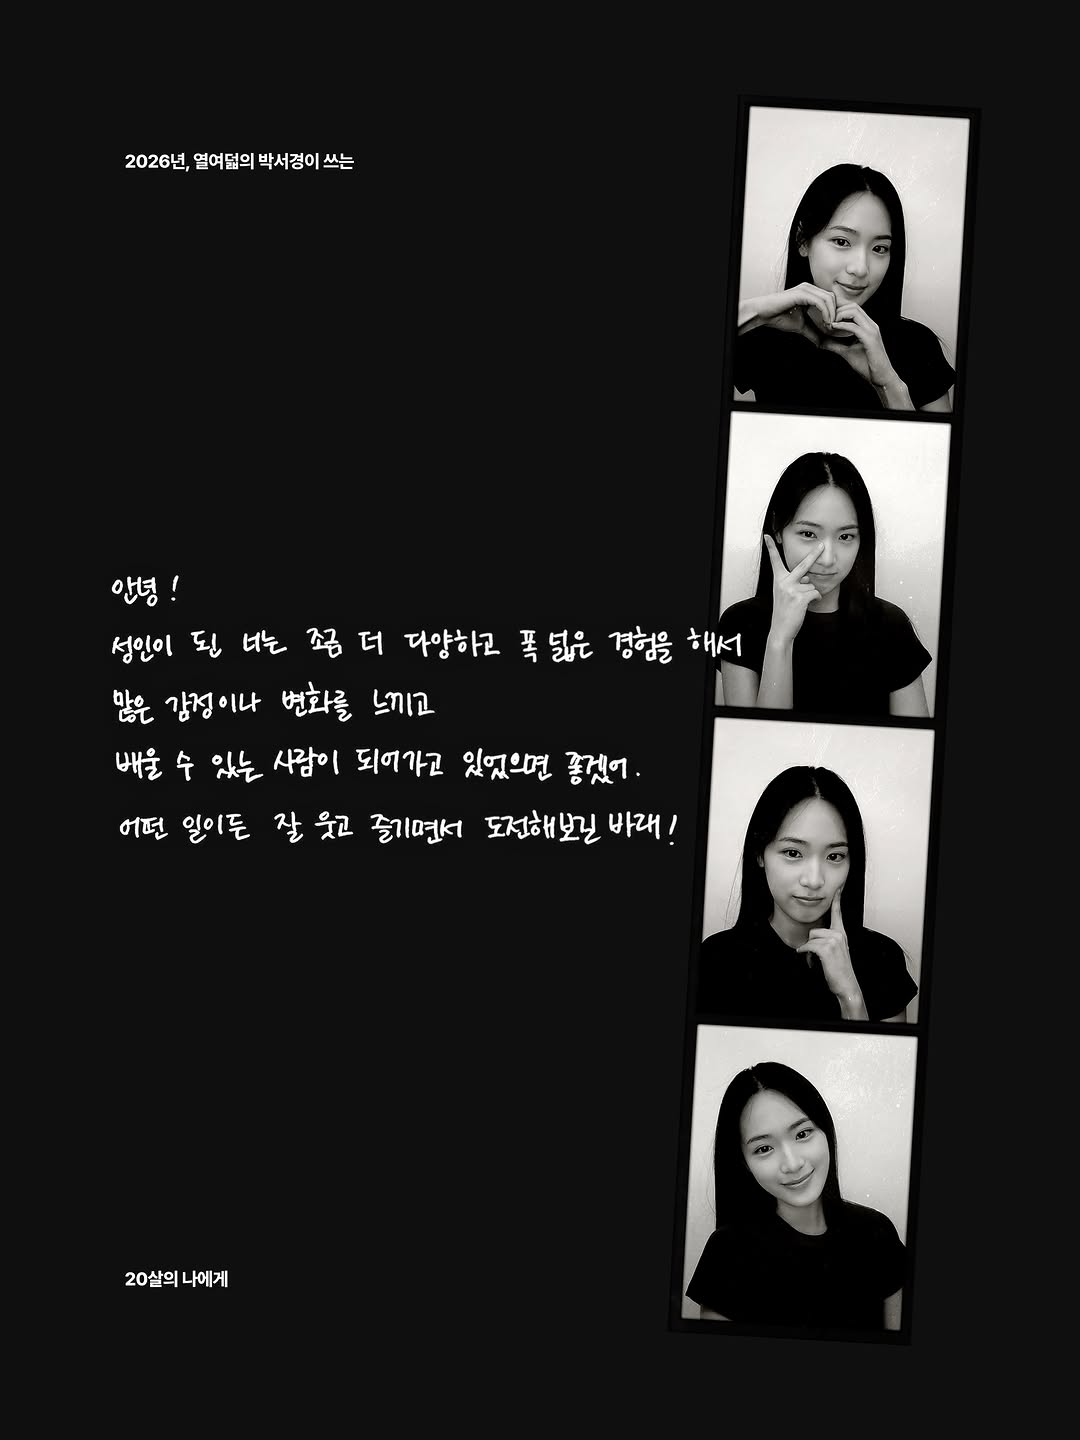 2026년, 열여덟의 박서경이 쓰는
안녕 !
성인이 된 너는 조금 더 다양하고 폭 넓은 경험을 해서
많은 감정이나 변화를 느끼고
배울 수 있는 사람이 되어가고 있었으면 좋겠어.
어떤 일이든 잘 웃고 즐기면서 도전해보길 바래!
20살의 나에게